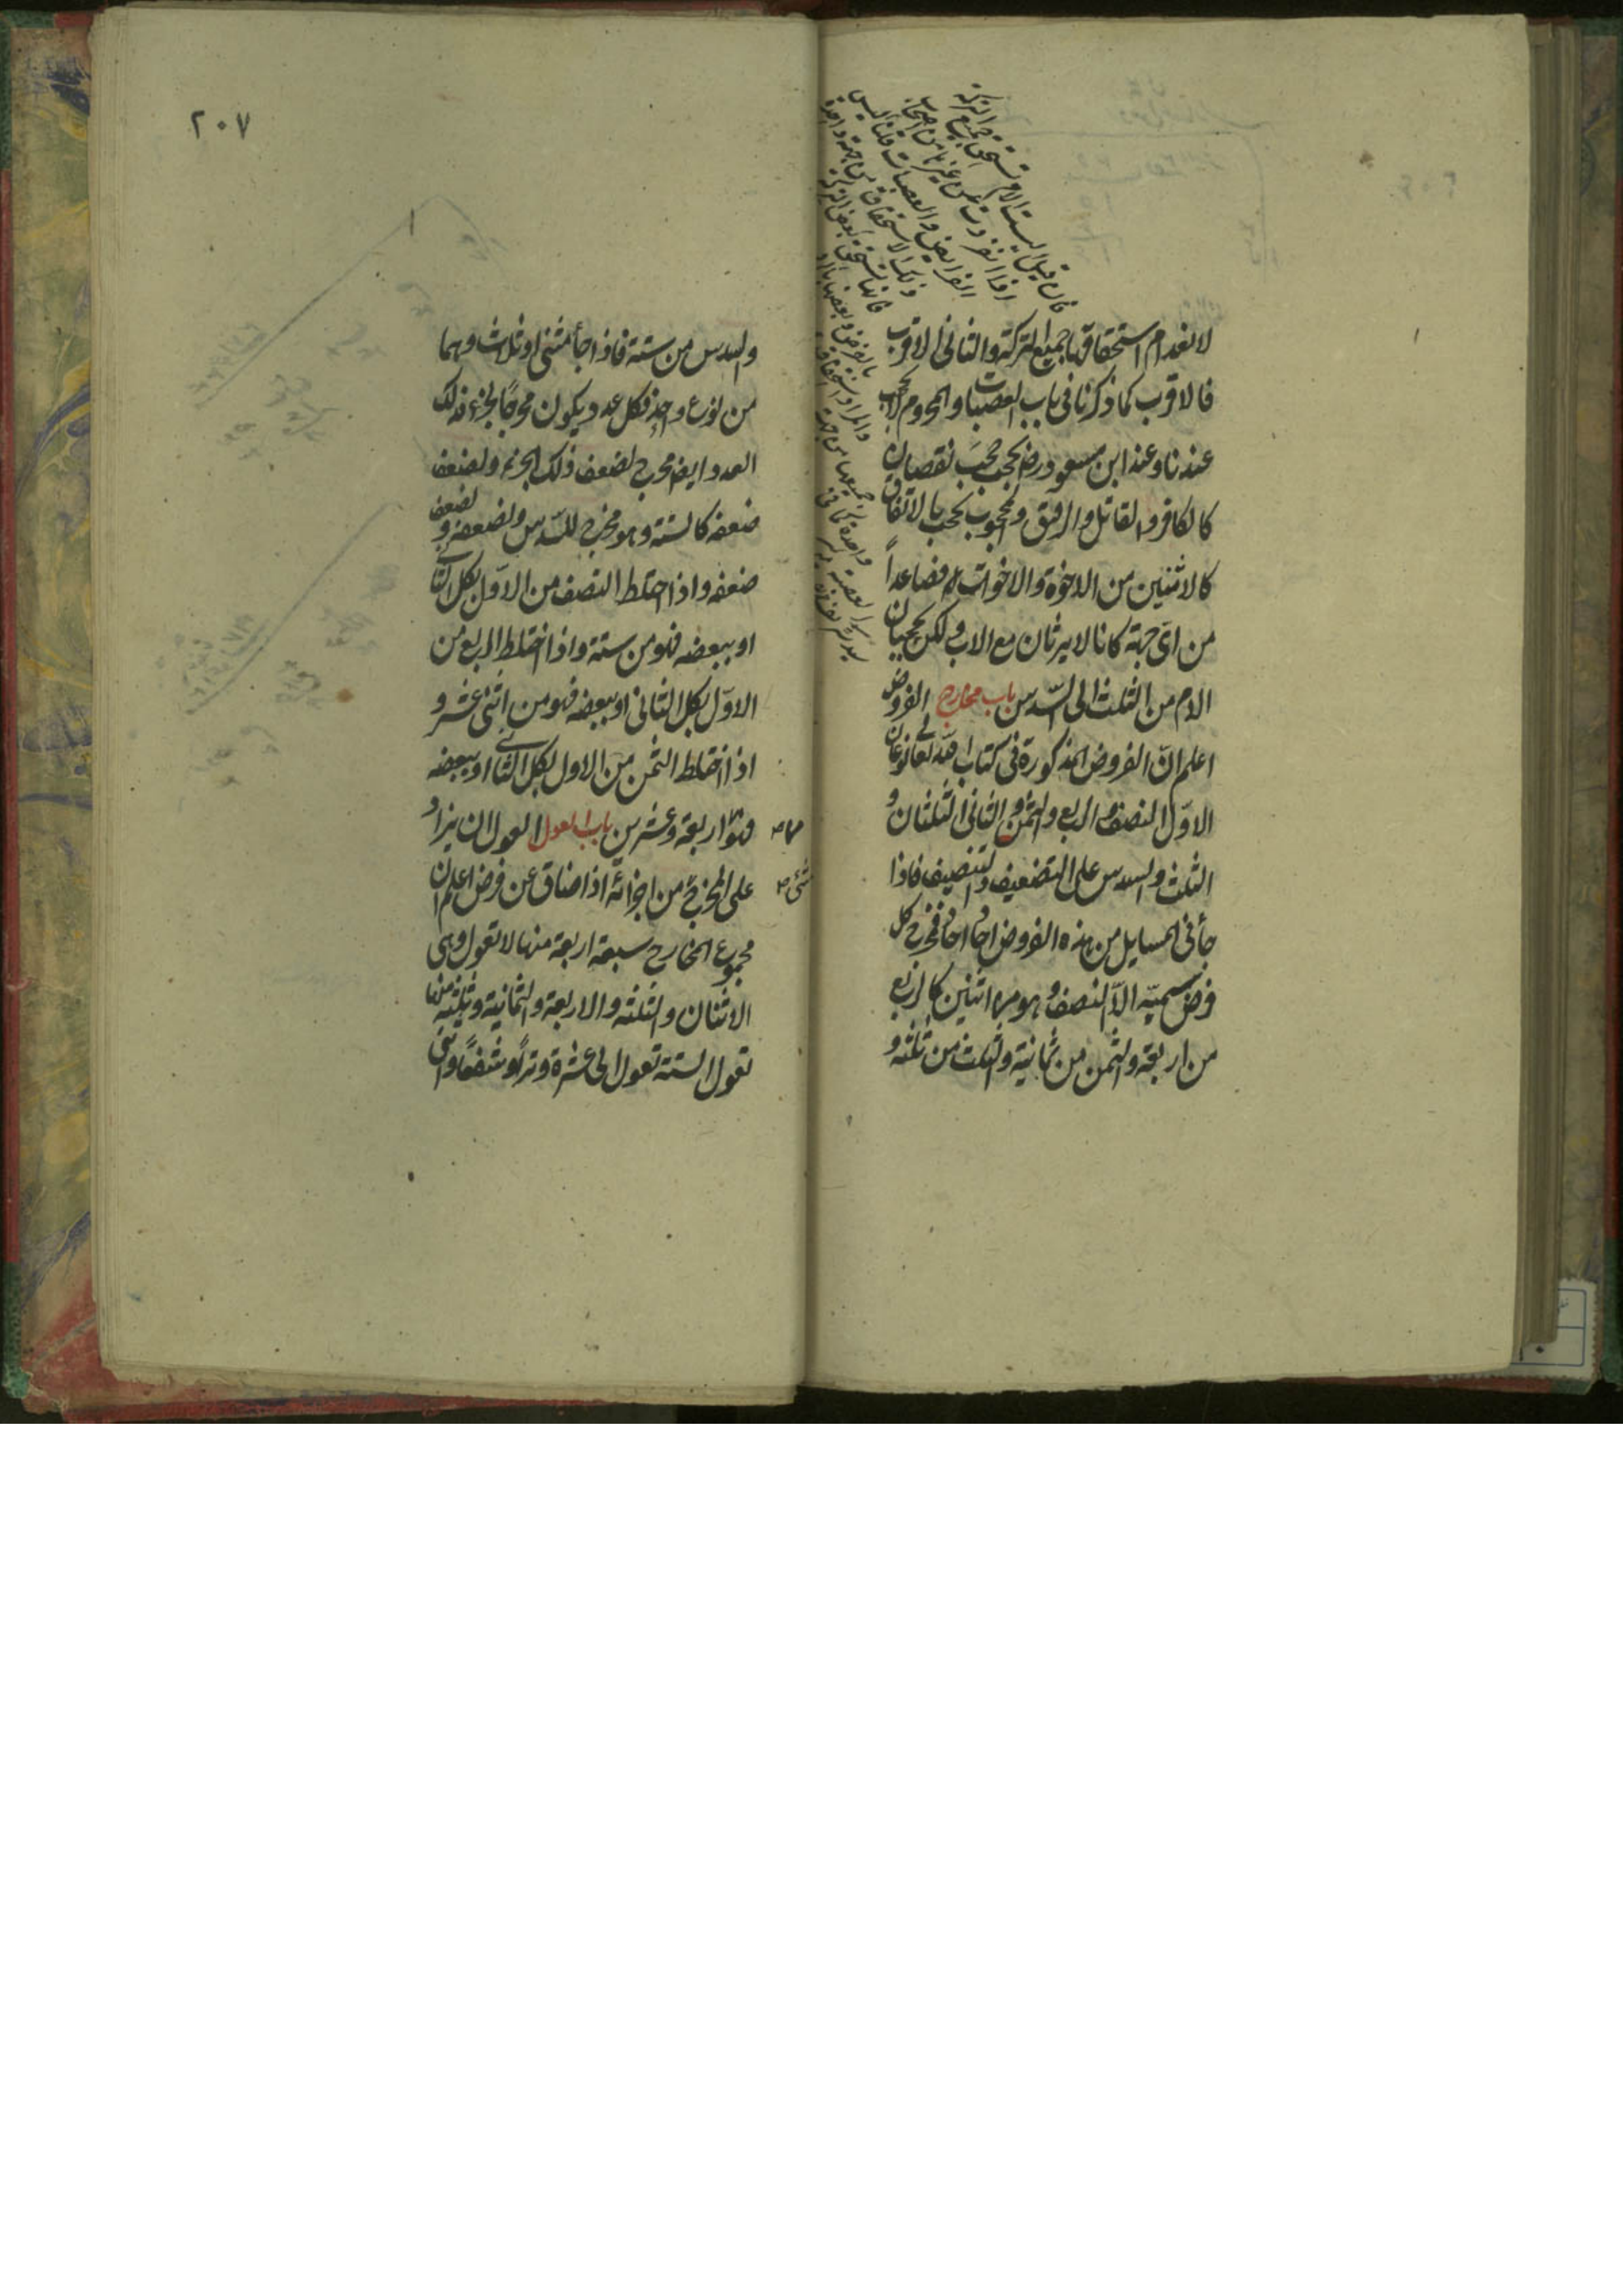 فان قيل اليست الام تستحق جميع التركة
اذا انفردت عن غيرها من اصحاب
الفرايض والعصبات قلنا ليس
ذلك الاستحقاق من جهة واحدة
فانها تستحق بعض التركة
بالفرض وبعضها بالرد
والمراد استحقاق
جميعها من جهة
واحدة كما في
العصبة
لانعدام استحقاقها جميع التركة والثاني الاقرب
فالاقرب كما ذكرنا في باب العصبات والمحروم لا يحجب
عندنا وعند ابن مسعود رض يحجب حجب نقصان
كالكافر والقاتل والرقيق والمحجوب يحجب بالاتفاق
كالاثنين من الاخوة والاخوات فصاعداً
من اىّ جهة كانا لا يرثان مع الاب ولكن يحجبان
الام من الثلث الى السّدس باب مخارج الفروض
اعلم انّ الفروض المذكورة في كتاب الله تعالى نوعان
الاوّل النصف والربع والثمن والثاني الثلثان و
الثلث والسدس على التضعيف والتنصيف فاذا
جأ في المسايل من هذه الفروض احاد احاد فمخرج كل
فرض سميّه الاّ النصف وهو من اثنين كالربع
من اربعة والثمن من ثمانية والثلث من ثلثة و
٢٠٧
والسدس من ستة فاذا جأ مثنى او ثلاث وهما
من نوع واحد فكل عدد يكون مخرجاً لجزء فذلك
العدد ايضا مخرج لضعف ذلك الجزء ولضعف
ضعفه كالستة وهو مخرج للسّدس ولضعفه و لضعف
ضعفه واذا اختلط النصف من الاوّل بكل الثاني
او ببعضه فهو من ستة واذا اختلط الربع من
الاوّل بكل الثاني او ببعضه فهو من اثنى عشر و
اذا اختلط الثمن من الاول بكل الثاني او ببعضه
فهو من اربعة وعشرين باب العول العول ان يزاد
على المخرج من اجزائه اذا ضاق عن فرض اعلم ان
شئ صح
مجموع المخارج سبعة اربعة منها لا تعول وهى
الاثنان والثلثة والاربعة والثمانية وثلثة منها
تعول الستة تعول الى عشرة وتراً و شفعاً واثنى